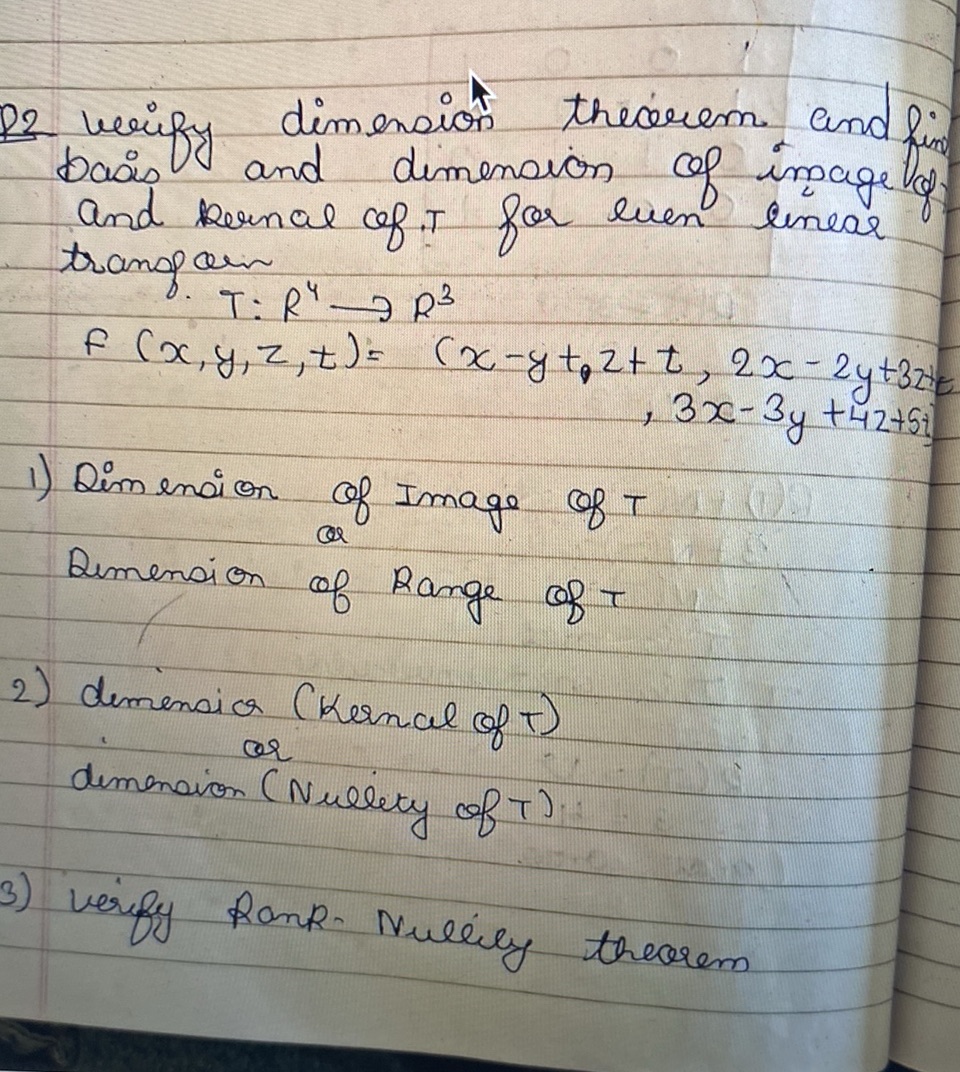 Q2 verify dimension theorem and find
basis and dimension of image of
and kernal of T for even linear
transform
T: R⁴ → R³
F (x, y, z, t) = (x - y + z + t, 2x - 2y + 3z +
, 3x - 3y + 4z + 5t
1) Dimension of Image of T
or
Dimension of Range of T
2) dimension (Kernal of T)
or
dimension (Nullity of T)
3) verify Rank - Nullity theorem